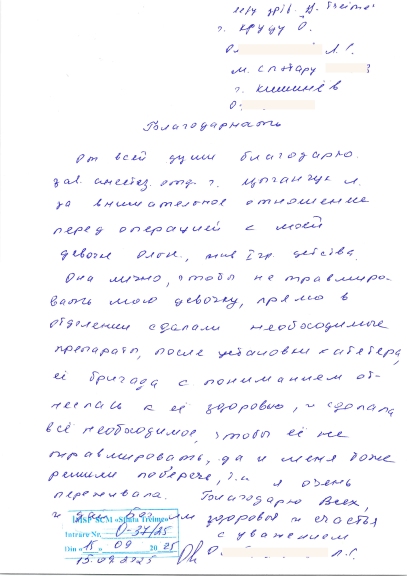 г. Круду О.
Л. С.
м. Спэтару
г. Кишинёв
О.
Благодарность
От всей души благодарю
зав. анестез. отд. г. Цыганчук Л.
за внимательное отношение
перед операцией к моей
девочки инв I гр. детства.
Она лично, чтобы не травмиро-
вать мою девочку, прямо в
отделении сделали необходимые
препараты, после установки катетера,
её бригада с пониманием от-
неслась к её здоровью, и сделала
всё необходимое, чтобы её не
травмировать, да и меня тоже
решили поберечь, т.к я очень
переживала. Благодарю Всех,
и дай Бог им здоровья и счастья
IMSP SCM «Sfînta Treime»
Intrare Nr. O-37/25
с уважением
Din «15» 09 2025
Л. С.
15.09.2025